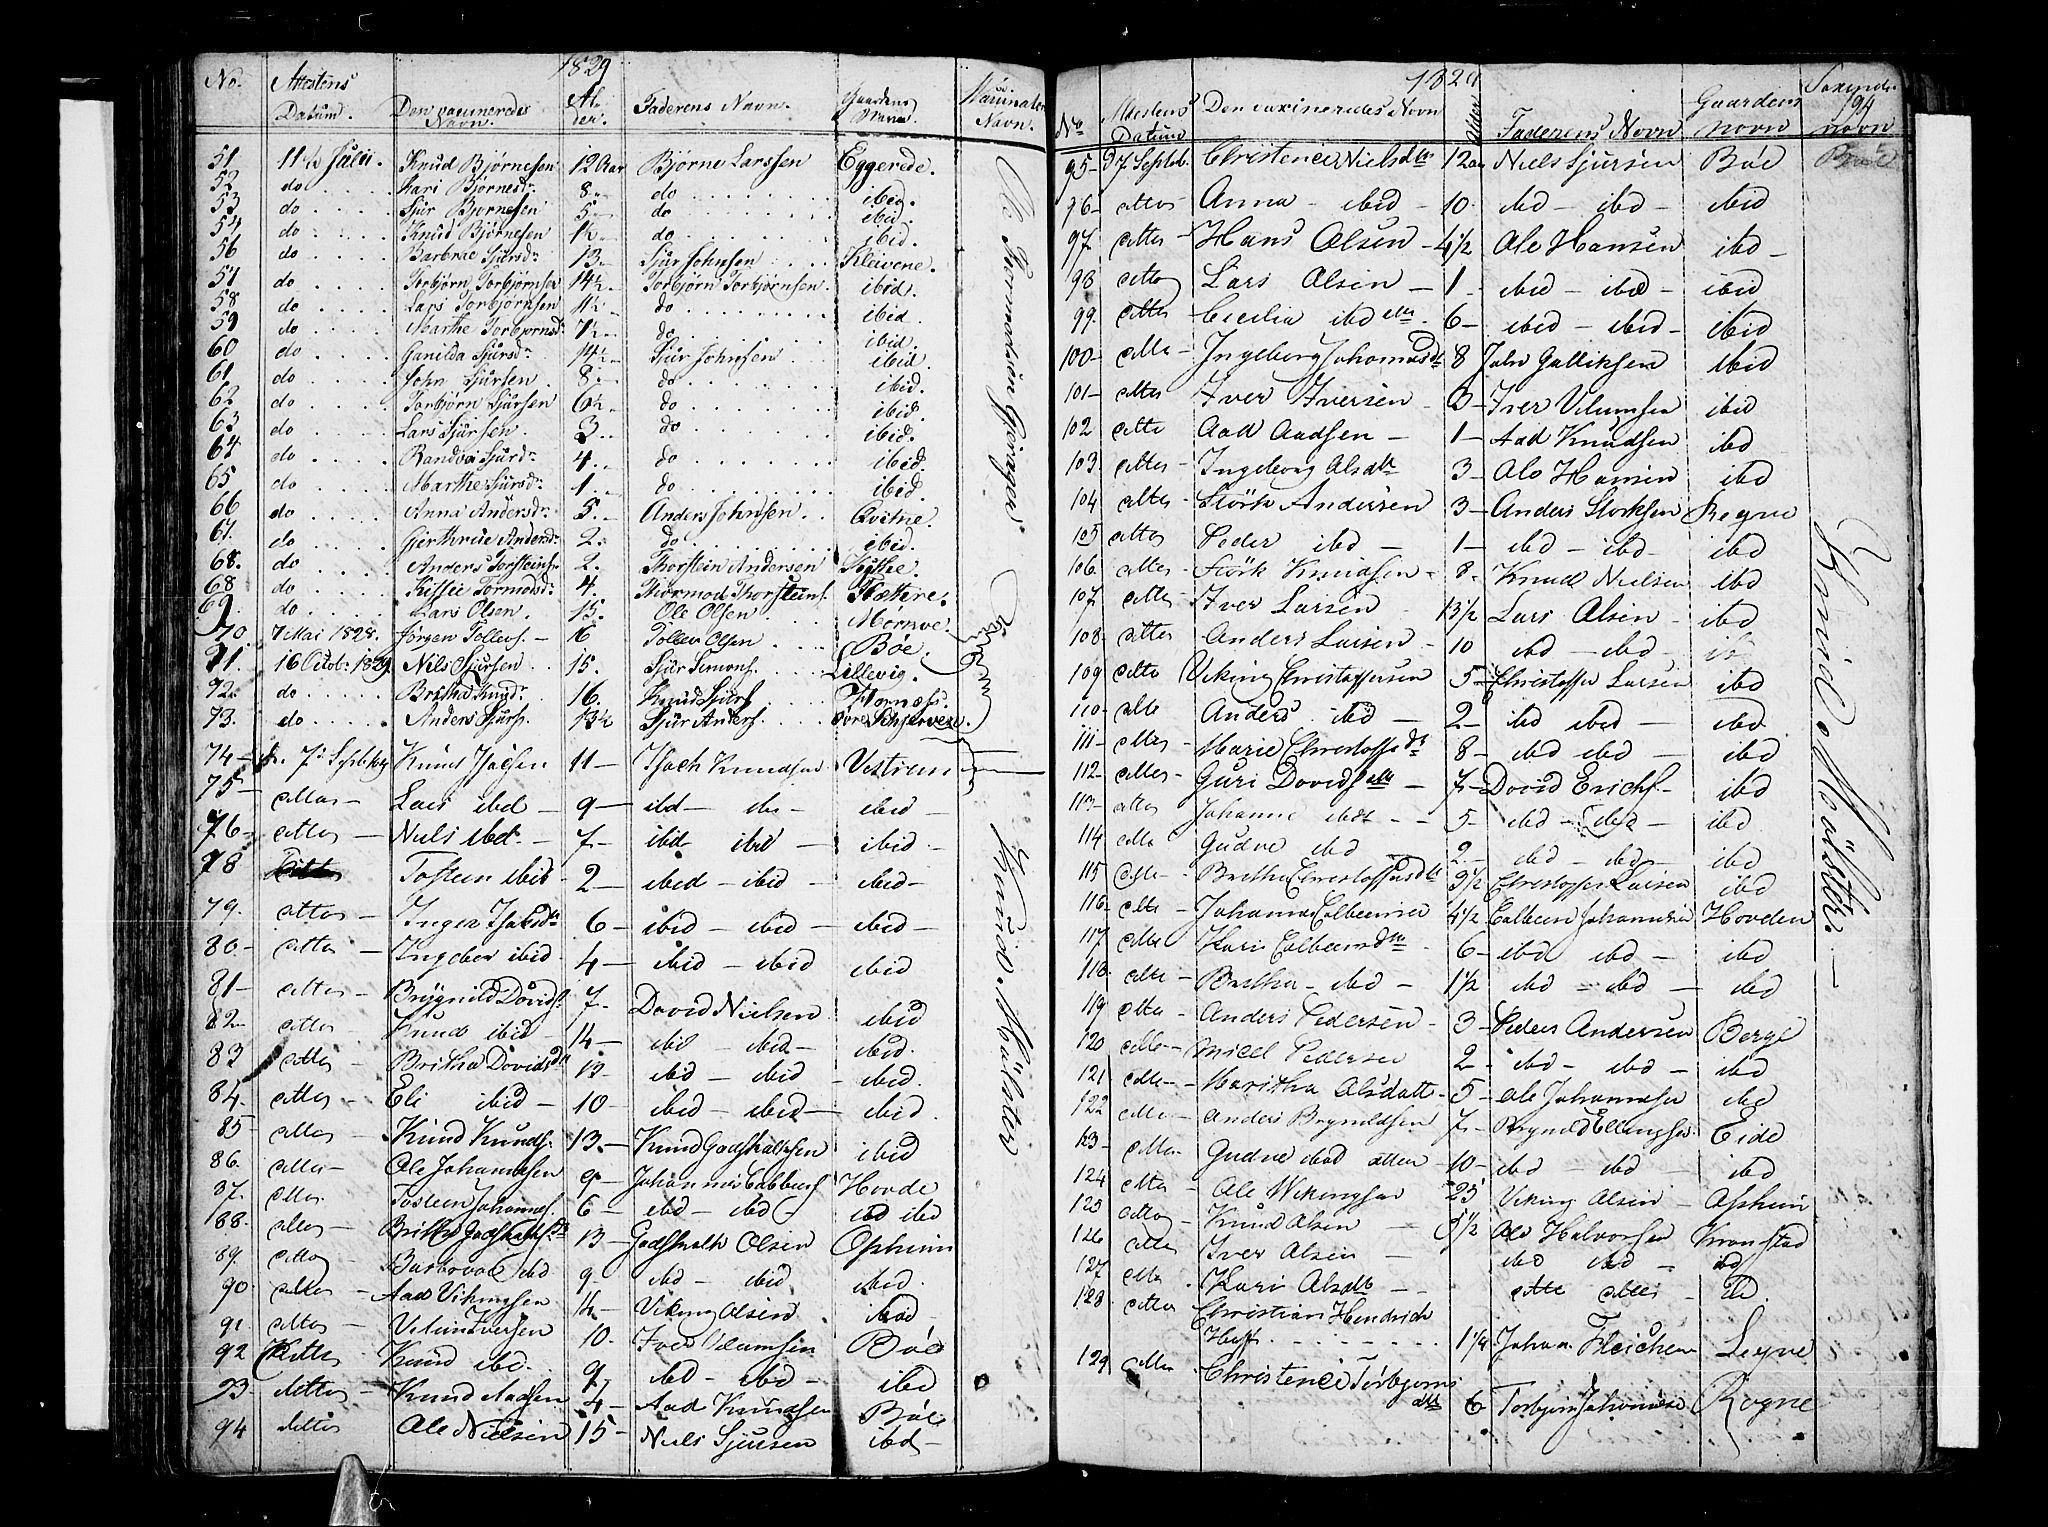 1829
No. Attestens Datum. Den vaccineredes Navn. Alder. Faderens Navn. Gaardens Navn Vaccinateurs Navn.
51 11te Juli. Knud Bjørnesen 12 Aar Bjørne Larssen Eggerede.
52 do Kari Bjørnesdr 8 do ibid.
53 do Sjur Bjørnesen 5 do ibid.
54 do Knud Bjørnesen 1½ do ibid.
56 do Barbrae Sjursdr 13 Sjur Johnsen Kleivene.
57 do Torbjørn Torbjørnsen 14½ Torbjørn Torbjørnsen ibid.
58 do Lars Torbjørnsen do ibid.
59 do Marthe Torbjørnsdr 7½ do ibid.
60 do Gunilda Sjursdr 14½ Sjur Johnsen ibid.
61 do John Sjursen 8 do ibid.
62 do Torbjørn Sjursen 6½ do ibid.
63 do Lars Sjursen 3 do ibid.
64 do Randvei Sjursdr 4 do ibid.
65 do Marthe Sjursdr 1 do ibid.
66 do Anna Andersdr 5 Anders Johnsen Qvitne.
67 do Gjerthrue Andersdr 2 do ibid.
68. do Anders Torsteins. 2. Thorstein Andersen Kythe.
68 do Tormodsdr 4. Thormod Thorsteins. Flatene.
69 do Lars Olsen 15. Ole Olsen Mørkve.
70 7 Mai 1828. Jørgen Tollevs. 16 Tollev Olsen Bøe.
71. 16 Octob: 1829. Nils Sjursen 15. Sjur Simons. Lillevig.
72. do Britha Knudr 16. Knud Sjurs Hornæs.
73. do Anders Sjurs. 13½ Sjur Anders.
Ole Thormodsen Gjerager
74 7de Septbr Knud Isacsen 11 Isach Knudsen Vestrem
75 ditto Lars ibd 9 ibd ibd ibid
76 ditto Niels ibd 7 ibid ibid ibid
78 ditto Tosteen ibid 2 ibid ibid ibid
79. ditto Inger Isaksdtr 6 ibid ibid ibid
80 ditto Ingebor ibid 4 ibid ibid ibid
81 ditto Brygnild Dovids 7 Dovid Nielsen ibid
82 ditto Knud ibid 14 ibid ibid ibid.
83 ditto Britha Dovidsdtr 12 ibid ibid ibid.
84. ditto Eli ibid 10 ibid ibid ibid
85 ditto Knud Knuds. 13 Knud Godskalksen ibid
86. ditto Ole Johannesen 9 Johannes Colbens. Hovde
87. ditto Tosteen Johannes. 6 ibd ibd ibd ibid
88. ditto Britha Godskalksdtr 13 Godskalk Olsen Opheim
89. ditto Barbroe ibd 9 ibd ibid ibid.
90 ditto Aad Vikingsen Viking Olsen ibid
91 ditto Velum Iversen 10. Iver Velumsen Böe
92 ditto Knud ibd. ibd ibd ibid
93 ditto Knud Aadsen 4 Aad Knudsen Böe
94 ditto Ole Nielsen 15 Niels Sjursen ibd
Knud Mølster
182
194
No Attestens Datum Den vaxineredes Navn Alder Faderens Navn Gaardens navn navn
95 7 Septbr. Christence Nielsdtr 12 aar Niels Sjursen Böe
96 ditto Anna ibid 10. ibd ibd ibid
97 ditto Hans Olsen 4½ Ole Hansen ibd
98 ditto Lars Olsen 1 ibid ibid ibid
99. ditto Cecilia ibd dtr 6 ibid ibid ibid
100 ditto Ingeborg Johannesdtr 8 John Gulliksen ibid
101 ditto Iver Iversen 3 Iver Velumsen ibid
102 ditto Aad Aadsen 1 Aad Knudsen ibd
103. ditto Ingeborg Olsdtr 3 Ole Hansen ibd
104 ditto Störk Andersen 3 Anders Storksen Rogne
105 ditto Peder ibd 1 ibd ibd ibd
106. ditto Störk Knudsen 8. Knud Nielsen ibd
107 ditto Iver Larsen 13½ Lars Olsen ibd
108. ditto Anders Larsen 10 ibd ibd
109 ditto Viking Christophersen 5 Christopher Larsen ibd
110 ditto Anders ibd 2 ibd ibid ibd.
111 ditto Marie Christophsdtr 8 ibd ibd ibd
112 ditto Guri Dovidsdtr 7 Dovid Erichs. ibd
113 ditto Johanne ibd 5 ibd ibd ibd
114 ditto Gudve ibd 2 ibd ibd ibd
115 ditto Britha Christophersdtr 9½ Christopher Larsen ibd
116 ditto Johannes Colbeensen 4½ Colbeen Johannesen Hovden
117 ditto Kari Colbeensdtr 6 ibd ibd ibd
118. ditto Britha ibd 1½ ibd ibd ibd
119 ditto Anders Pedersen 3 Peder Andersen Berge
120 ditto Micel Pedersen 2 ibd ibd ibd
121 ditto Maritha Olsdatt 5 Ole Johannesen ibd
122 ditto Anders Brynildsen 7 Brynild Ellingsen Eide
123 ditto Gudve ibd 10 ibd ibd ibd
124 ditto Ole Wikingsen 25 Viking Olsen Opheim
125 ditto Knud Olsen 5½ Ole Halvorsen Kronstad
126 ditto Iver Olsen ibd ibd ibd
127 ditto Kari Olsdtr ditto ditto ibd.
128 ditto Christian Hendrich
1¼ Johan Fleicher Legve
129 ditto Christence Torbjorns
dtr 6 Torbjørn Johannese Rogne
Knud Mølster